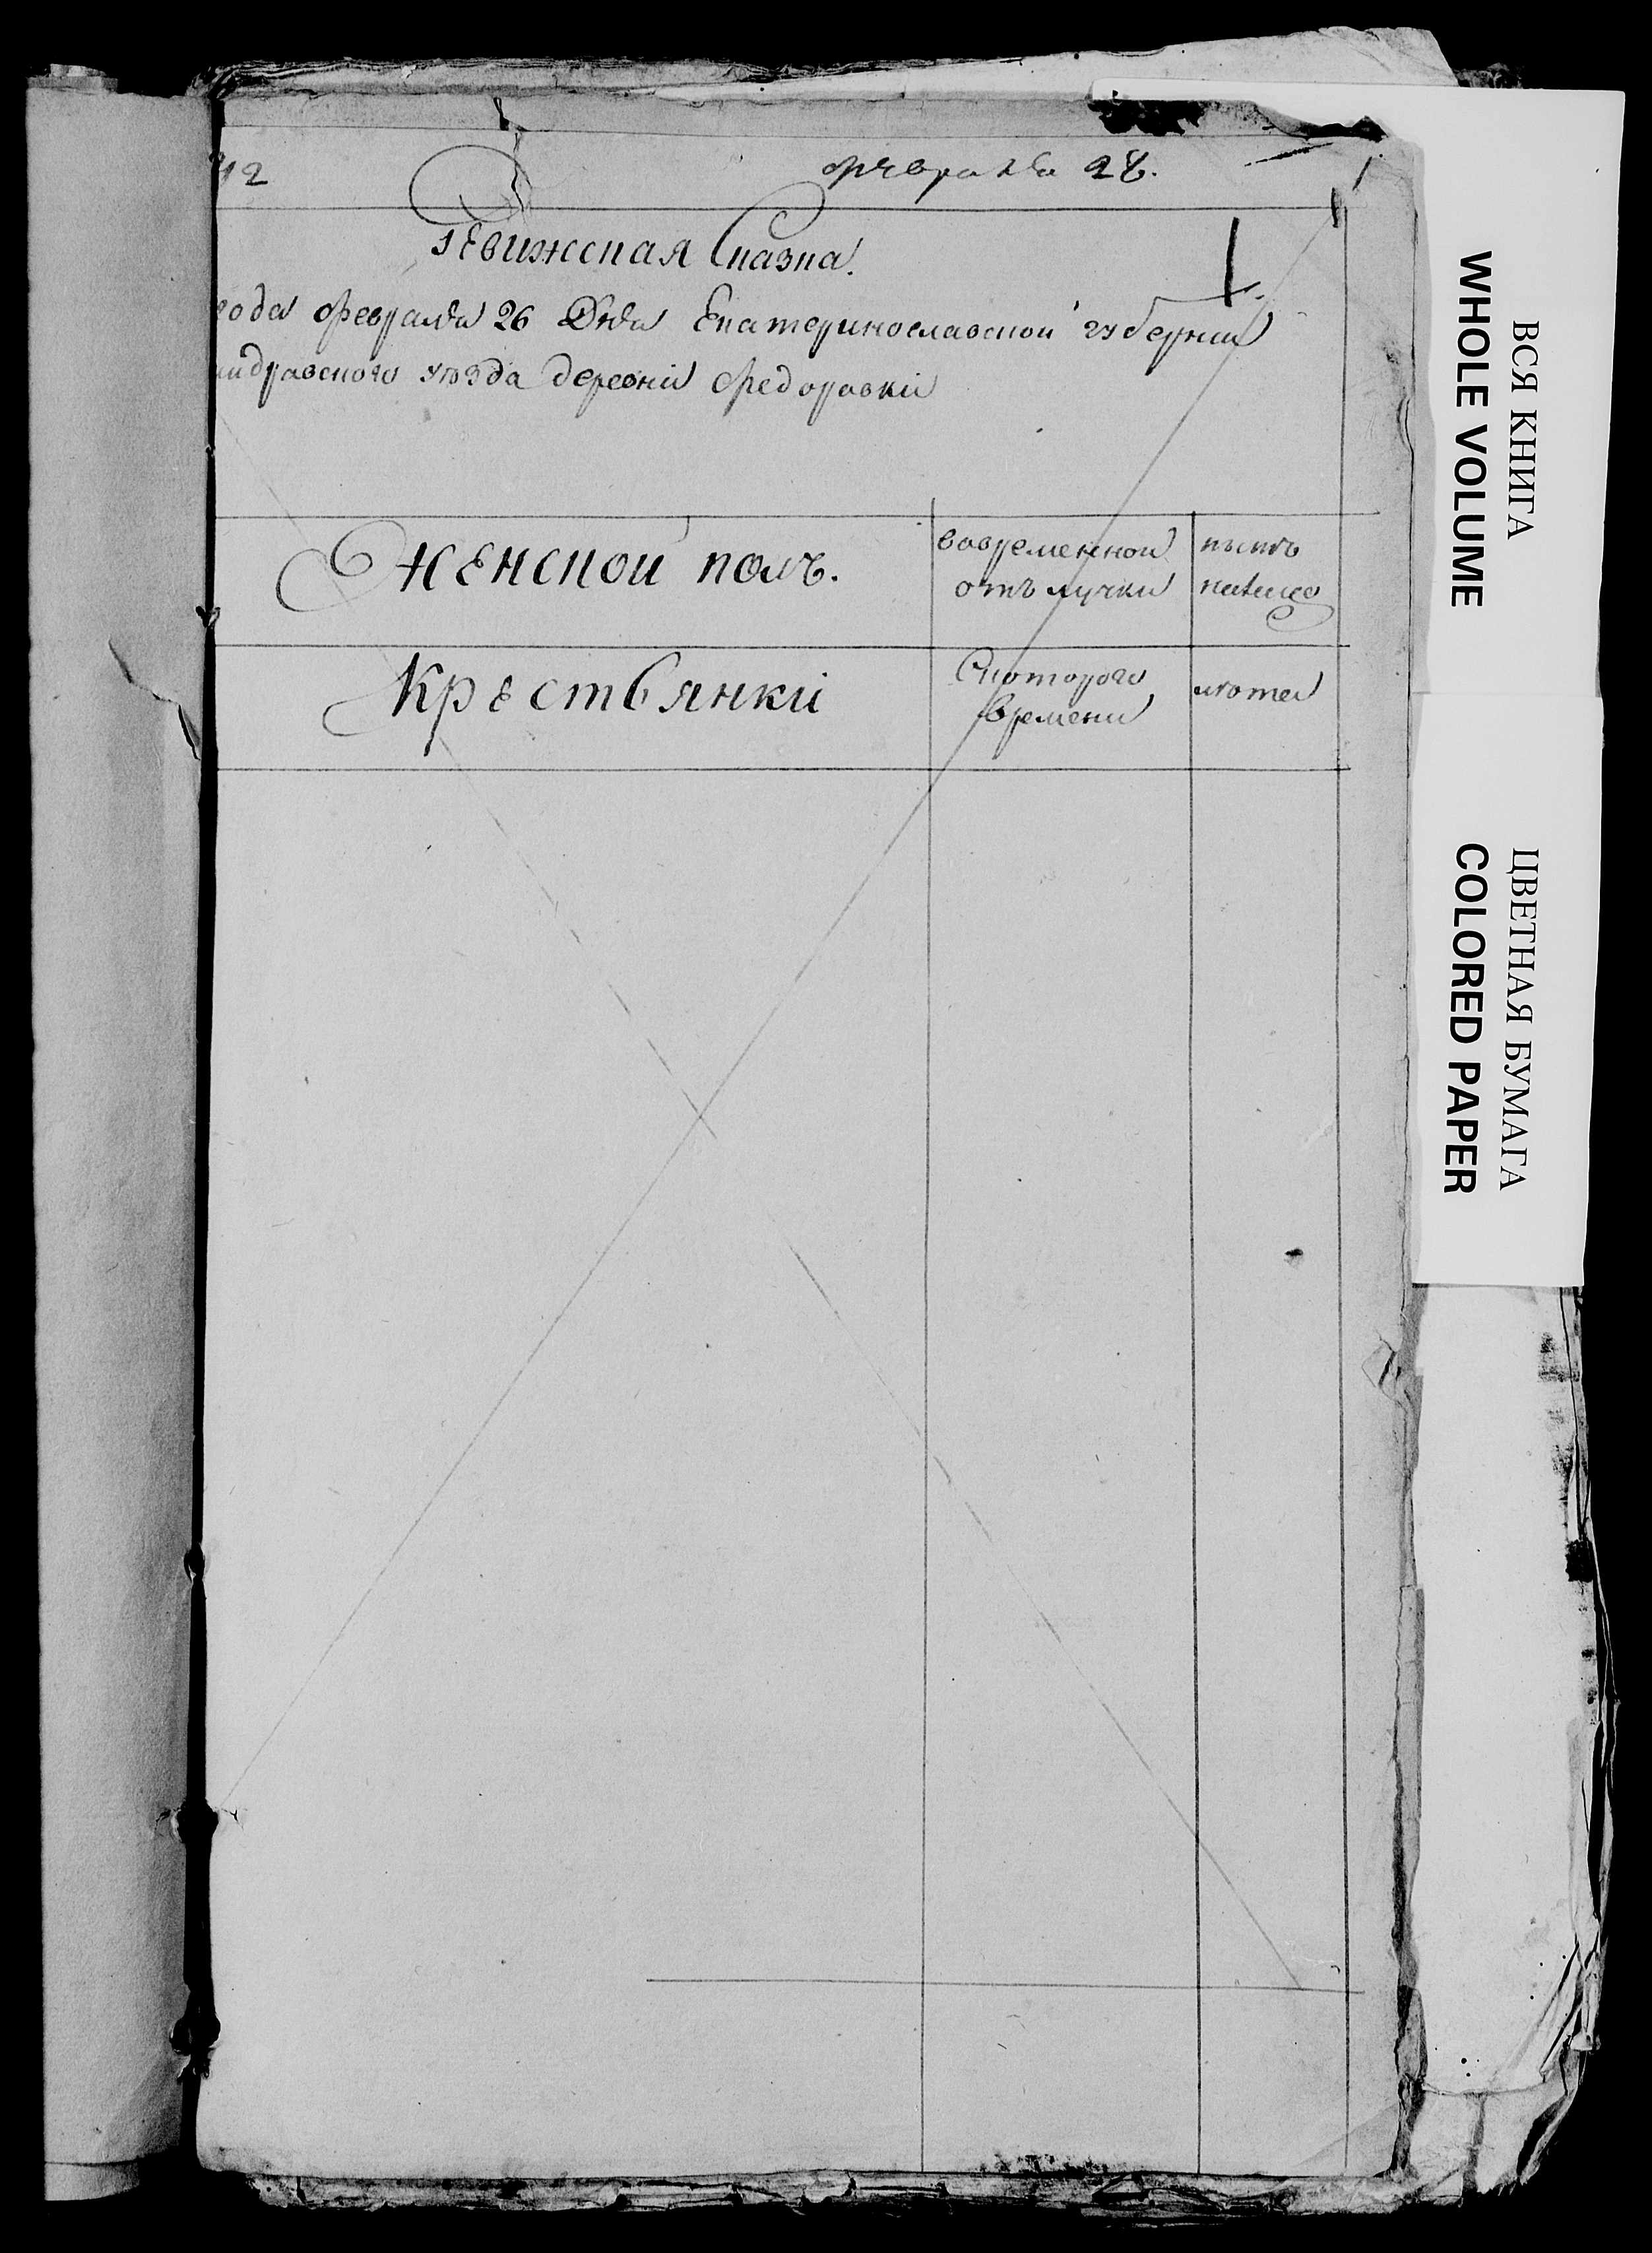 12 февраля 28. 1
Ревижская Сказка.
года февраля 26 Дня Екатеринославской губернии
андравского уезда деревни Федоравки
Женской полъ.
вовременной отълучки
нынѣ налицо
Крествянки
Скоторого времени
лѣта
ВСЯ КНИГА
WHOLE VOLUME
ЦВЕТНАЯ БУМАГА
COLORED PAPER